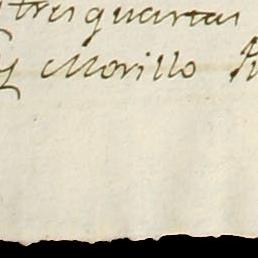 y tres quartas
y Morillo